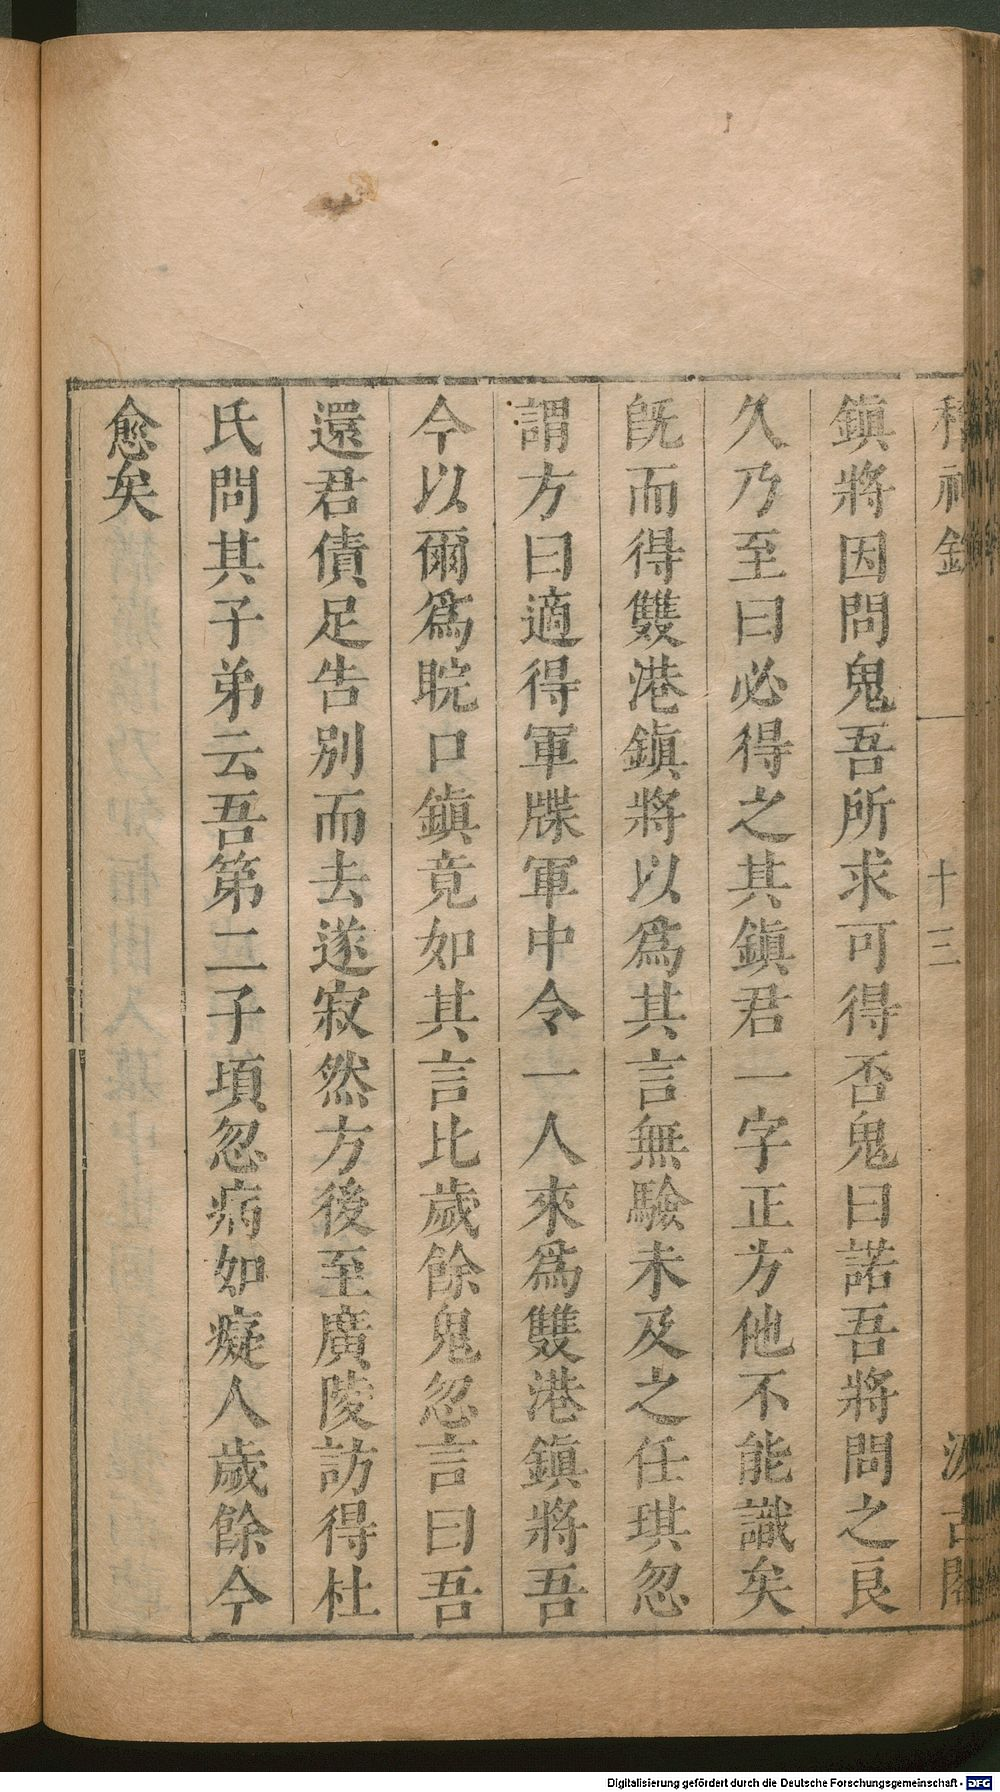 稽神錄 十三 汲古閣
鎭將因問鬼吾所求可得否鬼曰諾吾將問之良
久乃至曰必得之其鎭君一字正方他不能識矣
旣而得雙港鎭將以爲其言無驗未及之任琪忽
謂方曰適得軍牒軍中令一人來爲雙港鎭將吾
今以爾爲睆口鎭竟如其言比歲餘鬼忽言曰吾
還君債足告別而去遂寂然方後至廣陵訪得杜
氏問其子弟云吾第二子頃忽病如癡人歲餘今
愈矣
Digitalisierung gefördert durch die Deutsche Forschungsgemeinschaft - DFG